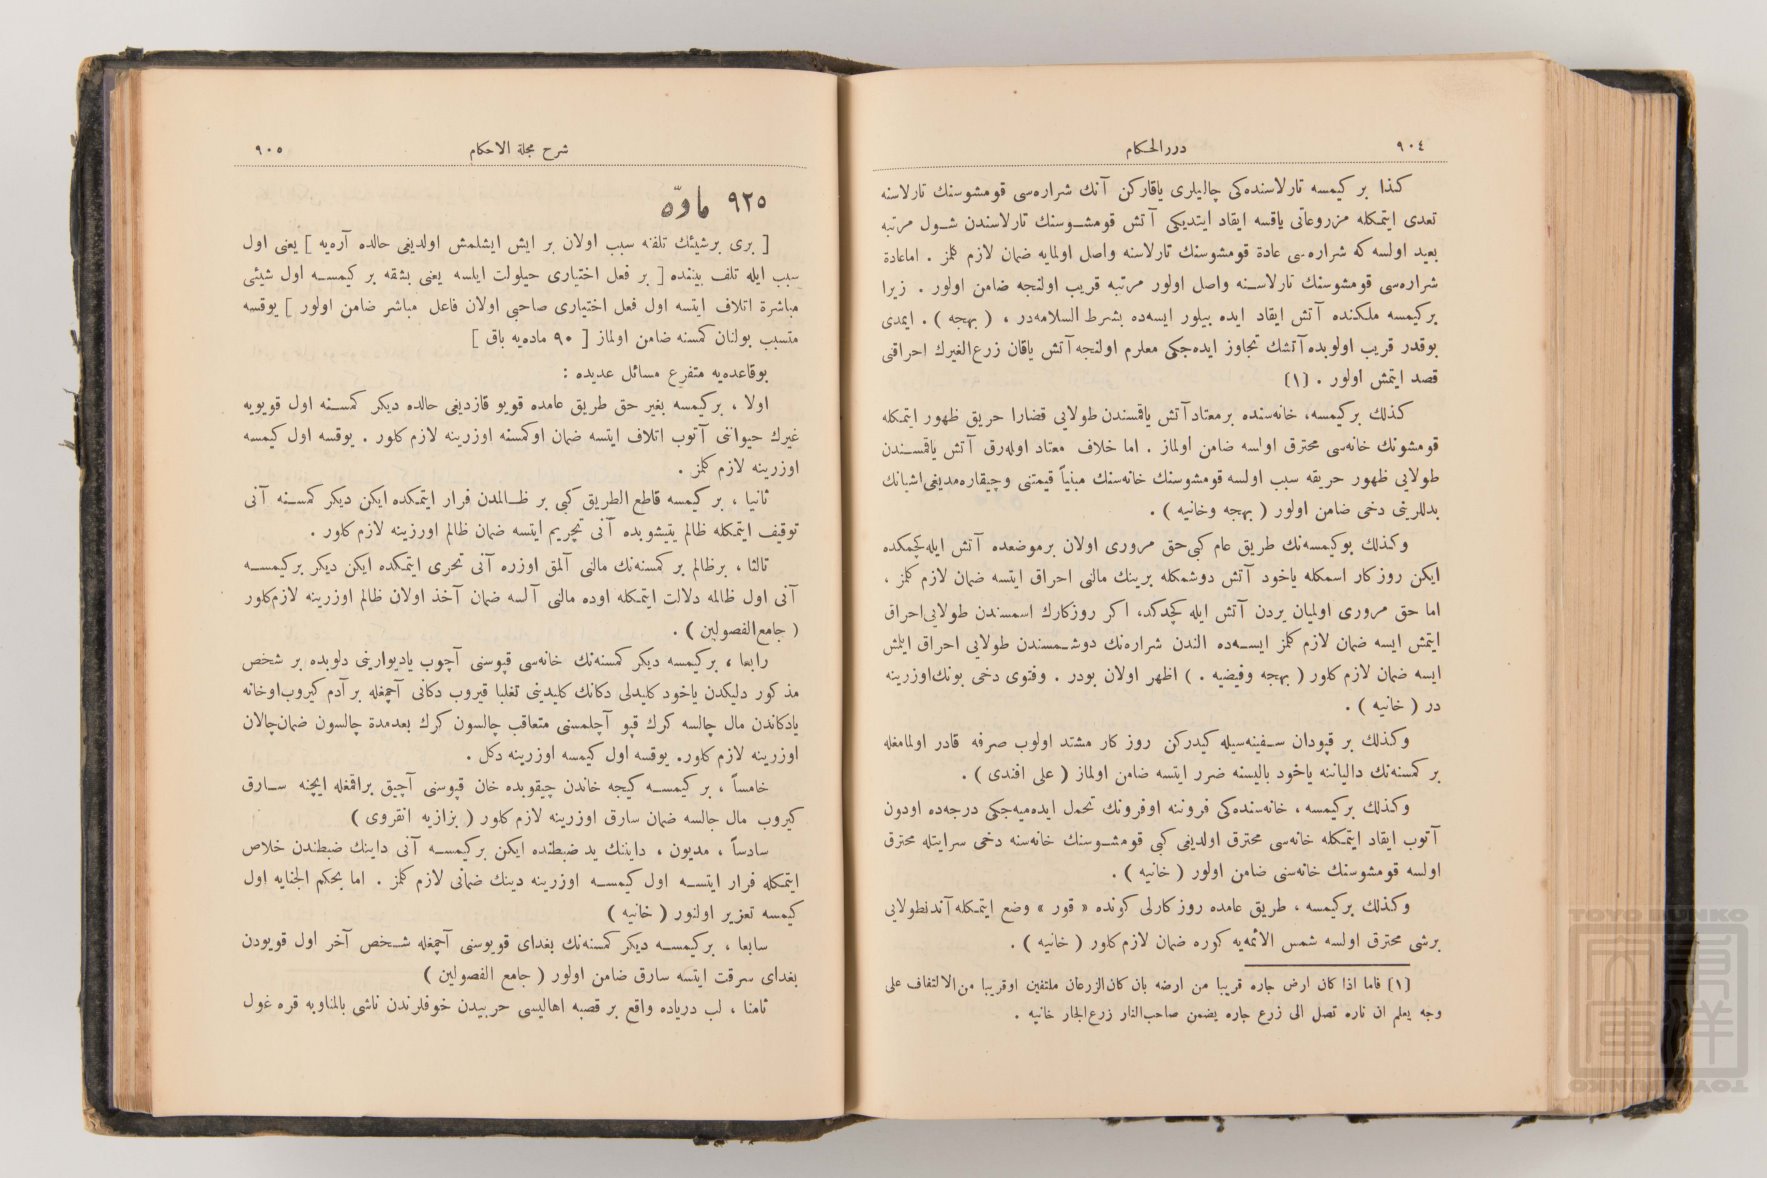 ٩٠٤
دررالحكام
كذا بر كيمسه تارلاسنده‌كى چاليلرى ياقاركن آنك شراره‌سى قومشوسنك تارلاسنه
تعدى ايتمكله مزروعاتى ياقسه ايقاد ايتديكى آتش قومشوسنك تارلاسندن شول مرتبه
بعيد اولسه كه شراره‌سى عادة قومشوسنك تارلاسنه واصل اولمايه ضمان لازم كلمز . اماعادة
شراره‌سى قومشوسنك تارلاسنه واصل اولور مرتبه قريب اولنجه ضامن اولور . زيرا
بركيمسه ملكنده آتش ايقاد ايده بيلور ايسه‌ده بشرط السلامه‌در ، ( بهجه ) . ايمدى
بوقدر قريب اولوبده آتشك تجاوز ايده‌جكى معلوم اولنجه آتش ياقان زرع‌الغيرك احراقنى
قصد ايتمش اولور . (١)
كذلك بركيمسه، خانه‌سنده برمعتاد آتش ياقمسندن طولايى قضارا حريق ظهور ايتمكله
قومشونك خانه‌سى محترق اولسه ضامن اولماز . اما خلاف معتاد اوله‌رق آتش ياقمسندن
طولايى ظهور حريقه سبب اولسه قومشوسنك خانه‌سنك مبنياً قيمتنى وچيقاره‌مديغى‌اشيانك
بدللرينى دخى ضامن اولور ( بهجه وخانيه ) .
وكذلك بوكيمسه‌نك طريق عام كبى‌حق مرورى اولان برموضعده آتش ايله‌كچمكده
ايكن روزكار اسمكله ياخود آتش دوشمكله برينك مالنى احراق ايتسه ضمان لازم كلمز .
اما حق مرورى اولميان يردن آتش ايله كچدكده، اكر روزكارك اسمسندن طولايى‌احراق
ايتمش ايسه ضمان لازم كلمز ايسه‌ده الندن شراره‌نك دوشمسندن طولايى احراق ايلمش
ايسه ضمان لازم كلور ( بهجه وفيضيه . ) اظهر اولان بودر . وفتوى دخى بونك‌اوزرينه
در ( خانيه ) .
وكذلك بر قپودان سفينه‌سيله كيدركن روز كار مشتد اولوب صرفه قادر اولمامغله
بر كمسنه‌نك دالياننه ياخود باليسنه ضرر ايتسه ضامن اولماز ( على افندى ) .
وكذلك بركيمسه ، خانه‌سنده‌كى فروننه اوفرونك تحمل ايده‌ميه‌جكى درجه‌ده اودون
آتوب ايقاد ايتمكله خانه‌سى محترق اولديغى كبى قومشوسنك خانه‌سنه دخى سرايتله محترق
اولسه قومشوسنك خانه‌سنى ضامن اولور ( خانيه ) .
وكذلك بركيمسه ، طريق عامده روزكارلى كونده « قور » وضع ايتمكله آندنطولايى
برشى محترق اولسه شمس الائمه‌يه كوره ضمان لازم كلور ( خانيه ) .
(١) فاما اذا كان ارض جاره قريبا من ارضه بان كان‌الزرعان ملتفين اوقريبا من‌الالتفاف على
وجه يعلم ان ناره تصل الى زرع جاره يضمن صاحب‌النار زرع‌الجار خانيه .
شرح مجلة الاحكام
٩٠٥
٩٢٥ مادّه
[ برى برشيئك تلفنه سبب اولان بر ايش ايشلمش اولديغى حالده آره‌يه ] يعنى اول
سبب ايله تلف بيننده [ بر فعل اختيارى حيلولت ايلسه يعنى بشقه بر كيمسه اول شيئى
مباشرة اتلاف ايتسه اول فعل اختيارى صاحبى اولان فاعل مباشر ضامن اولور ] يوقسه
متسبب بولنان كمسنه ضامن اولماز [ ٩٠ ماده‌يه باق ]
بوقاعده‌يه متفرع مسائل عديده :
اولا ، بركيمسه بغير حق طريق عامده قويو قازديغى حالده ديكر كمسنه اول قويويه
غيرك حيواننى آتوب اتلاف ايتسه ضمان اوكمسنه اوزرينه لازم كلور . يوقسه اول كيمسه
اوزرينه لازم كلمز .
ثانيا ، بر كيمسه قاطع الطريق كبى بر ظالمدن فرار ايتمكده ايكن ديكر كمسنه آنى
توقيف ايتمكله ظالم يتيشوبده آنى تجريم ايتسه ضمان ظالم اورزينه لازم كلور .
ثالثا ، برظالم بر كمسنه‌نك مالنى آلمق اوزره آنى تحرى ايتمكده ايكن ديكر بركيمسه
آنى اول ظالمه دلالت ايتمكله اوده مالنى آلسه ضمان آخذ اولان ظالم اوزرينه لازم‌كلور
( جامع‌الفصولين ) .
رابعا ، بركيمسه ديكر كمسنه‌نك خانه‌سى قپوسنى آچوب ياديوارينى دلوبده بر شخص
مذكور دليكدن ياخود كليدلى دكانك كليدينى تغلبا قيروب دكانى آچمغله بر آدم كيروب‌اوخانه
يادكاندن مال چالسه كرك قپو آچلمسنى متعاقب چالسون كرك بعدمدة چالسون ضمان‌چالان
اوزرينه لازم كلور. يوقسه اول كيمسه اوزرينه دكل .
خامساً ، بر كيمسه كيجه خاندن چيقوبده خان قپوسنى آچيق براقمغله ايچنه سارق
كيروب مال چالسه ضمان سارق اوزرينه لازم كلور ( بزازيه انقروى )
سادساً ، مديون ، داينك يد ضبطنده ايكن بركيمسه آنى داينك ضبطندن خلاص
ايتمكله فرار ايتسه اول كيمسه اوزرينه دينك ضمانى لازم كلمز . اما بحكم الجنايه اول
كيمسه تعزير اولنور ( خانيه )
سابعا ، بركيمسه ديكر كمسنه‌نك بغداى قويوسنى آچمغله شخص آخر اول قويودن
بغداى سرقت ايتسه سارق ضامن اولور ( جامع الفصولين )
ثامنا ، لب درياده واقع بر قصبه اهاليسى حربيدن خوفلرندن ناشى بالمناوبه قره غول
TOYO BUNKO
東洋文庫
TOYO BUNKO